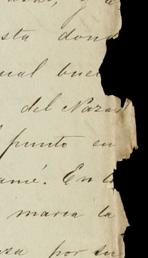 sta don
ual bue
del Naza
punto en
amé. En la
maria la
por su